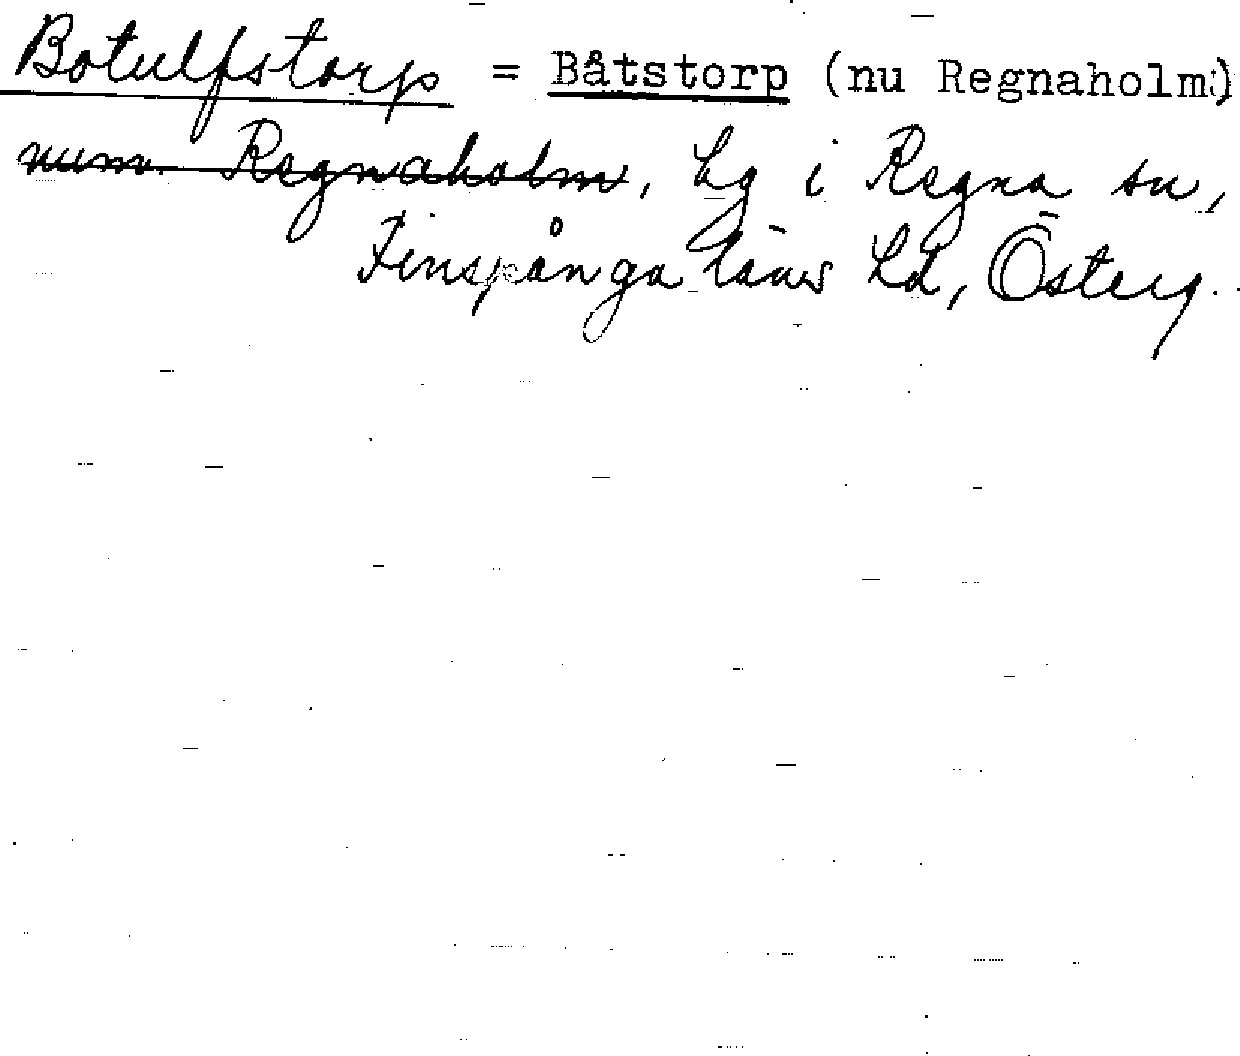 Botulfstorp = Båtstorp (nu Regnaholm)
num. Regnaholm, Lg i Regna sn,
Finspånga läns hd, Österg.